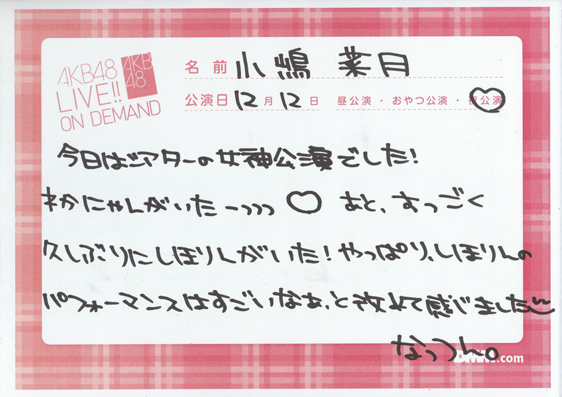 AKB48
LIVE!!
ON DEMAND
AKB
48
名前 小嶋 菜月
公演日 12月12日 昼公演・おやつ公演・夜公演
今日はシアターの女神公演でした!
ネかにゃんがいたーっっっ♡ あと、すっごく
久しぶりにしほりんがいた!やっぱり、しほりんの
パフォーマンスはすごいなぁ、と改れて感じました
なっつん。
.com